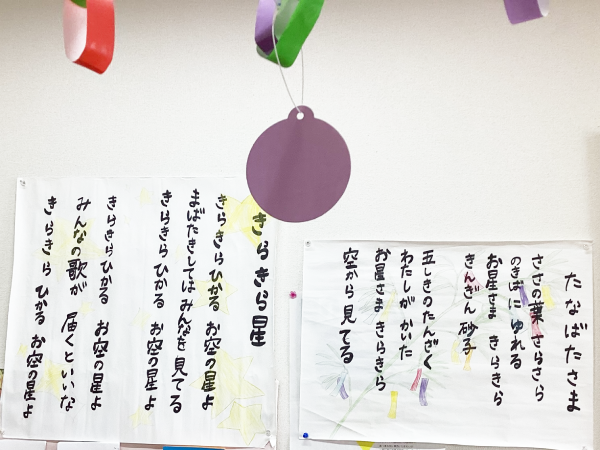 たなばたさま
ささの葉 さらさら
のきばに ゆれる
お星さま きらきら
きんぎん 砂子
五しきのたんざく
わたしが かいた
お星さま きらきら
空から 見てる
きらきら星
きらきら ひかる お空の星よ
まばたきしては みんなを 見てる
きらきら ひかる お空の星よ
きらきら ひかる お空の星よ
みんなの歌が 届くといいな
きらきら ひかる お空の星よ